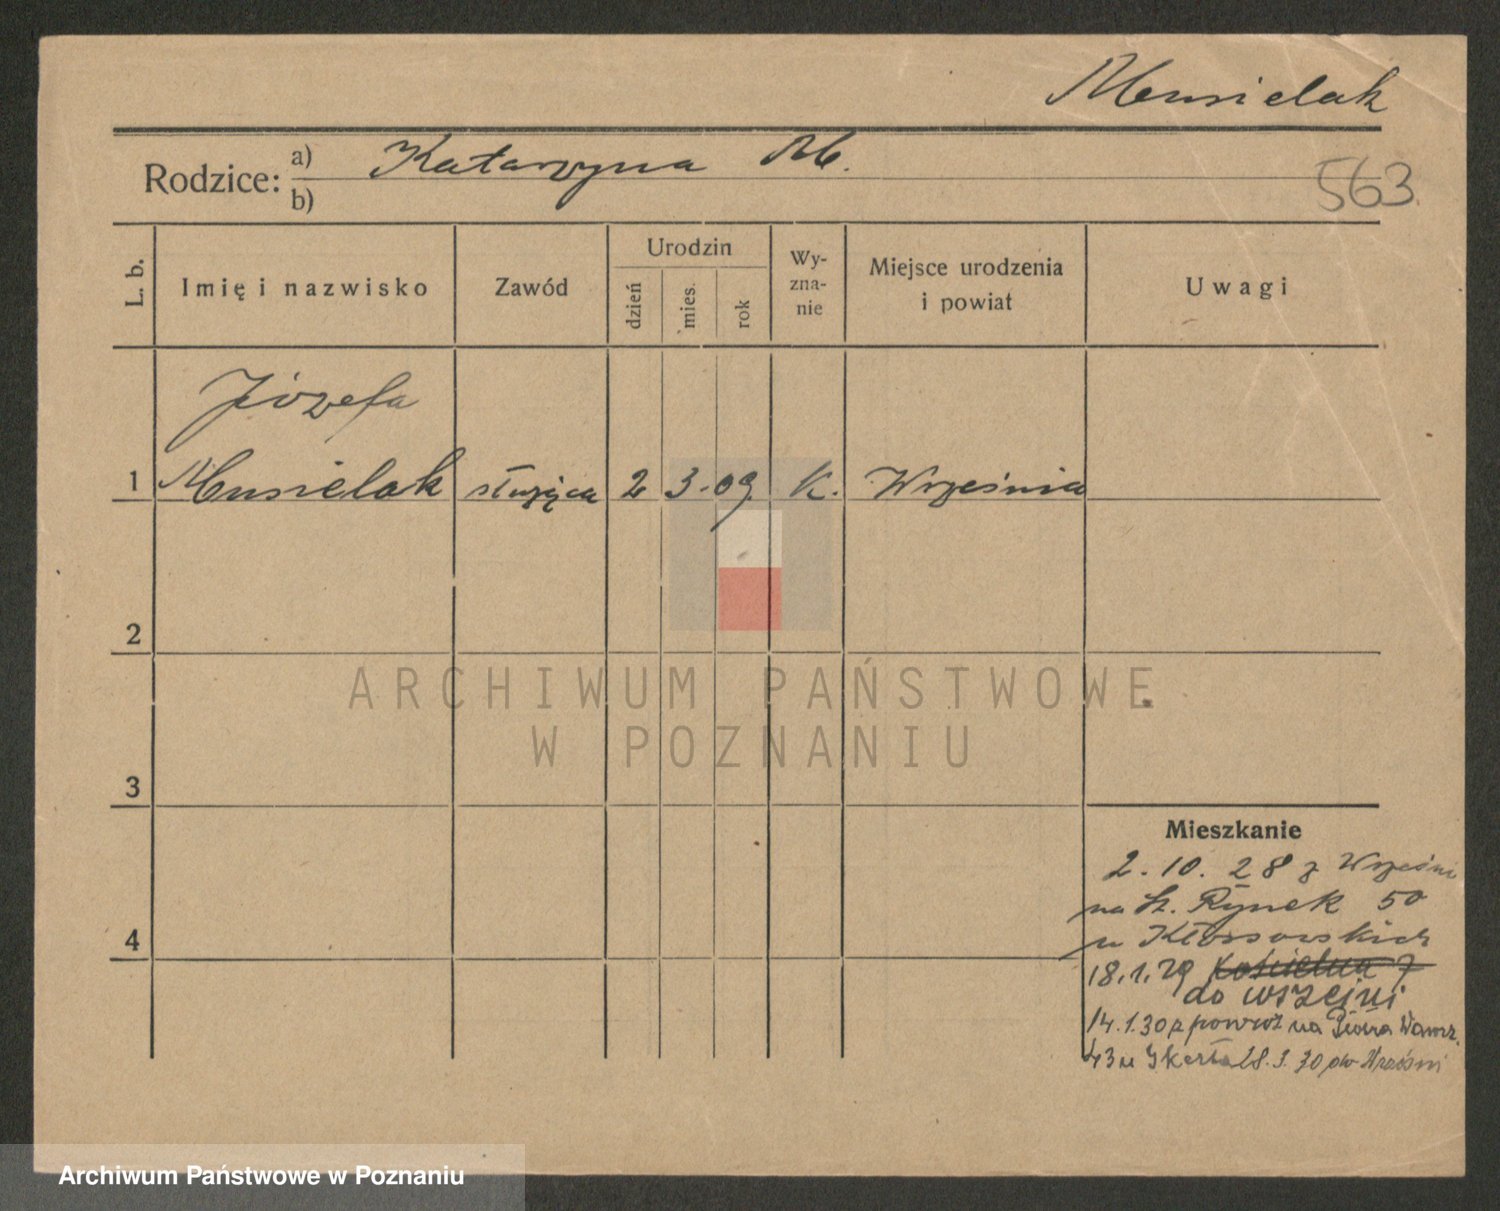 Musielak
Rodzice: a) Katarzyna M.
b)
563
L. b. Imię i nazwisko Zawód Urodzin dzień mies. rok Wy-zna-nie Miejsce urodzenia i powiat Uwagi
Józefa
1 Musielak służąca 2 3. 09. K. Września
2
ARCHIWUM PAŃSTWOWE
W POZNANIU
3
Mieszkanie
2. 10. 28 z Wrześni
na St. Rynek 50
4
u
18.1.29 Kościelna 7
do
14.1.30 z powrot na Piotra Wawrz.
43 u 28.3.30 do Wrześni
Archiwum Państwowe w Poznaniu